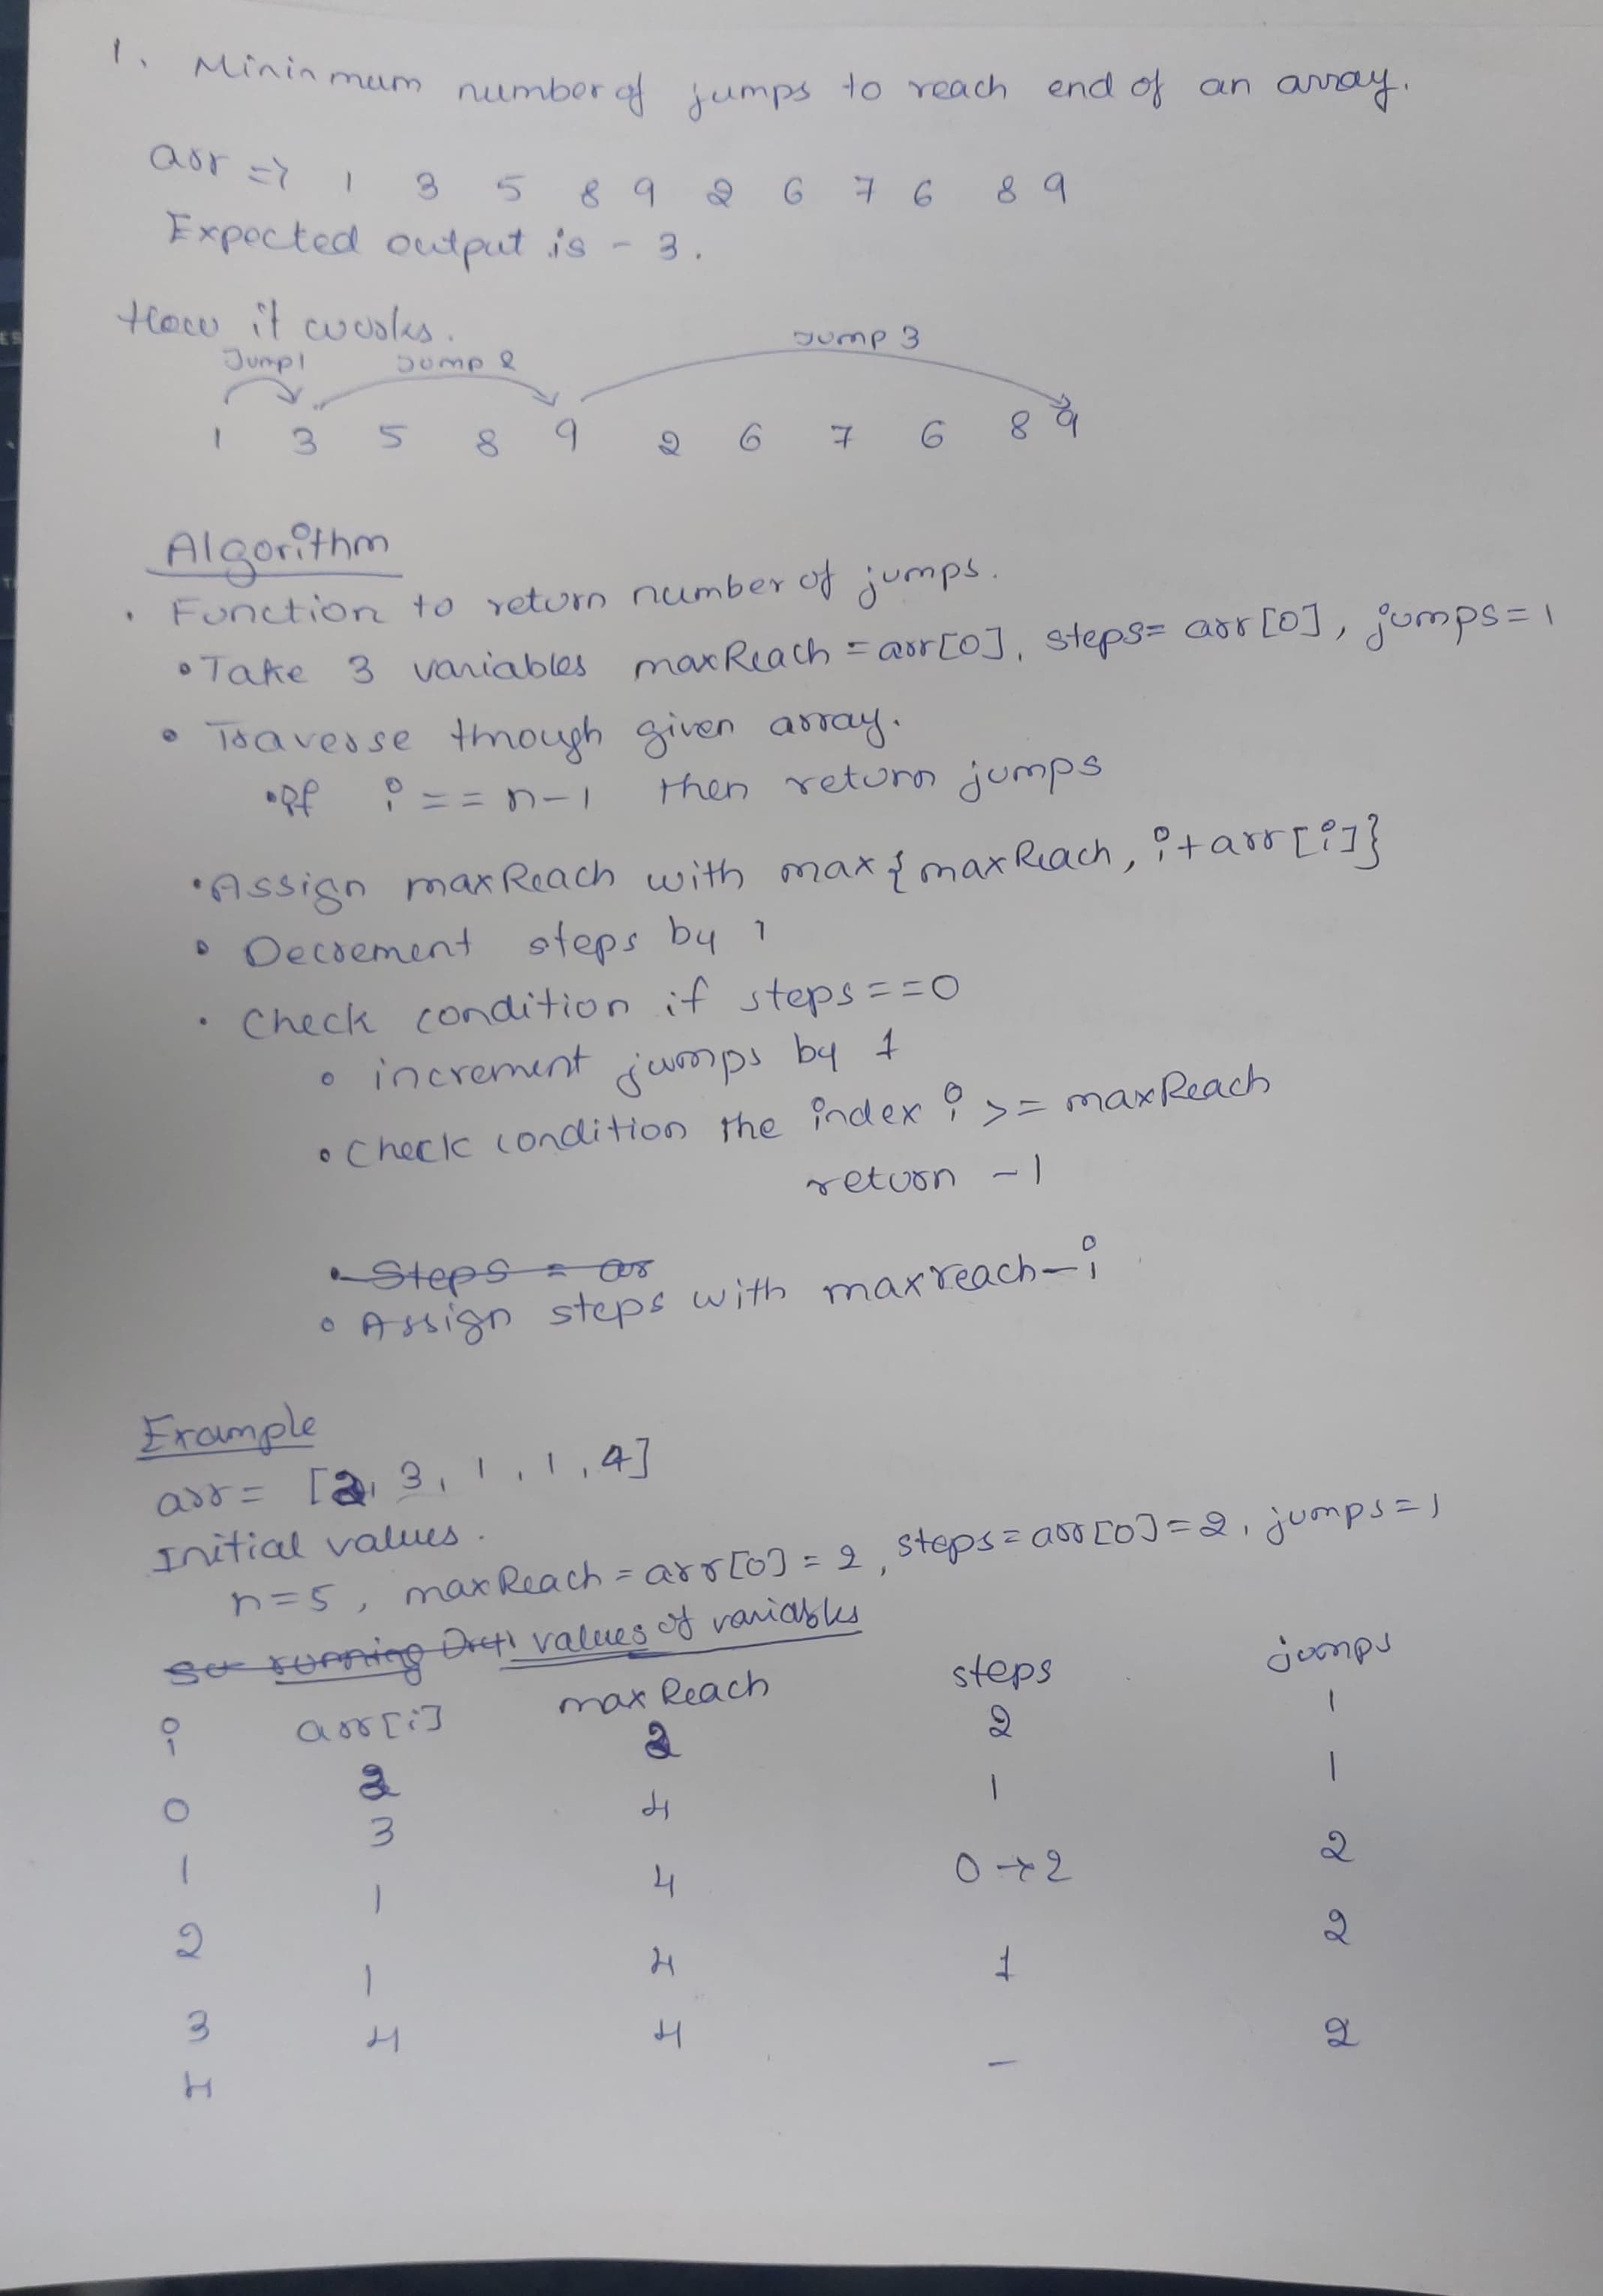 1. Mininmum number of jumps to reach end of an array.
arr => 1 3 5 8 9 2 6 7 6 8 9
Expected output is - 3.
How it works.
Jump1 Jump 2 Jump 3
1 3 5 8 9 2 6 7 6 8 9
Algorithm
. Function to return number of jumps.
• Take 3 variables maxReach = arr[0], steps= arr[0], jumps=1
• Traverse through given array.
• if i == n-1 then return jumps
• Assign maxReach with max{maxReach, i+arr[i]}
• Decrement steps by 1
• Check condition if steps==0
• increment jumps by 1
• Check condition the index i >= maxReach
return -1
• Steps = ar
• Assign steps with maxreach-i
Example
arr= [2, 3, 1, 1, 4]
Initial values.
n=5, maxReach=arr[0]=2, steps=arr[0]=2, jumps=1
running values of variables
i arr[i] maxReach steps jumps
0 2 2 2 1
1 3 4 1 1
2 1 4 0→2 2
3 1 4 1 2
4 4 4 - 2